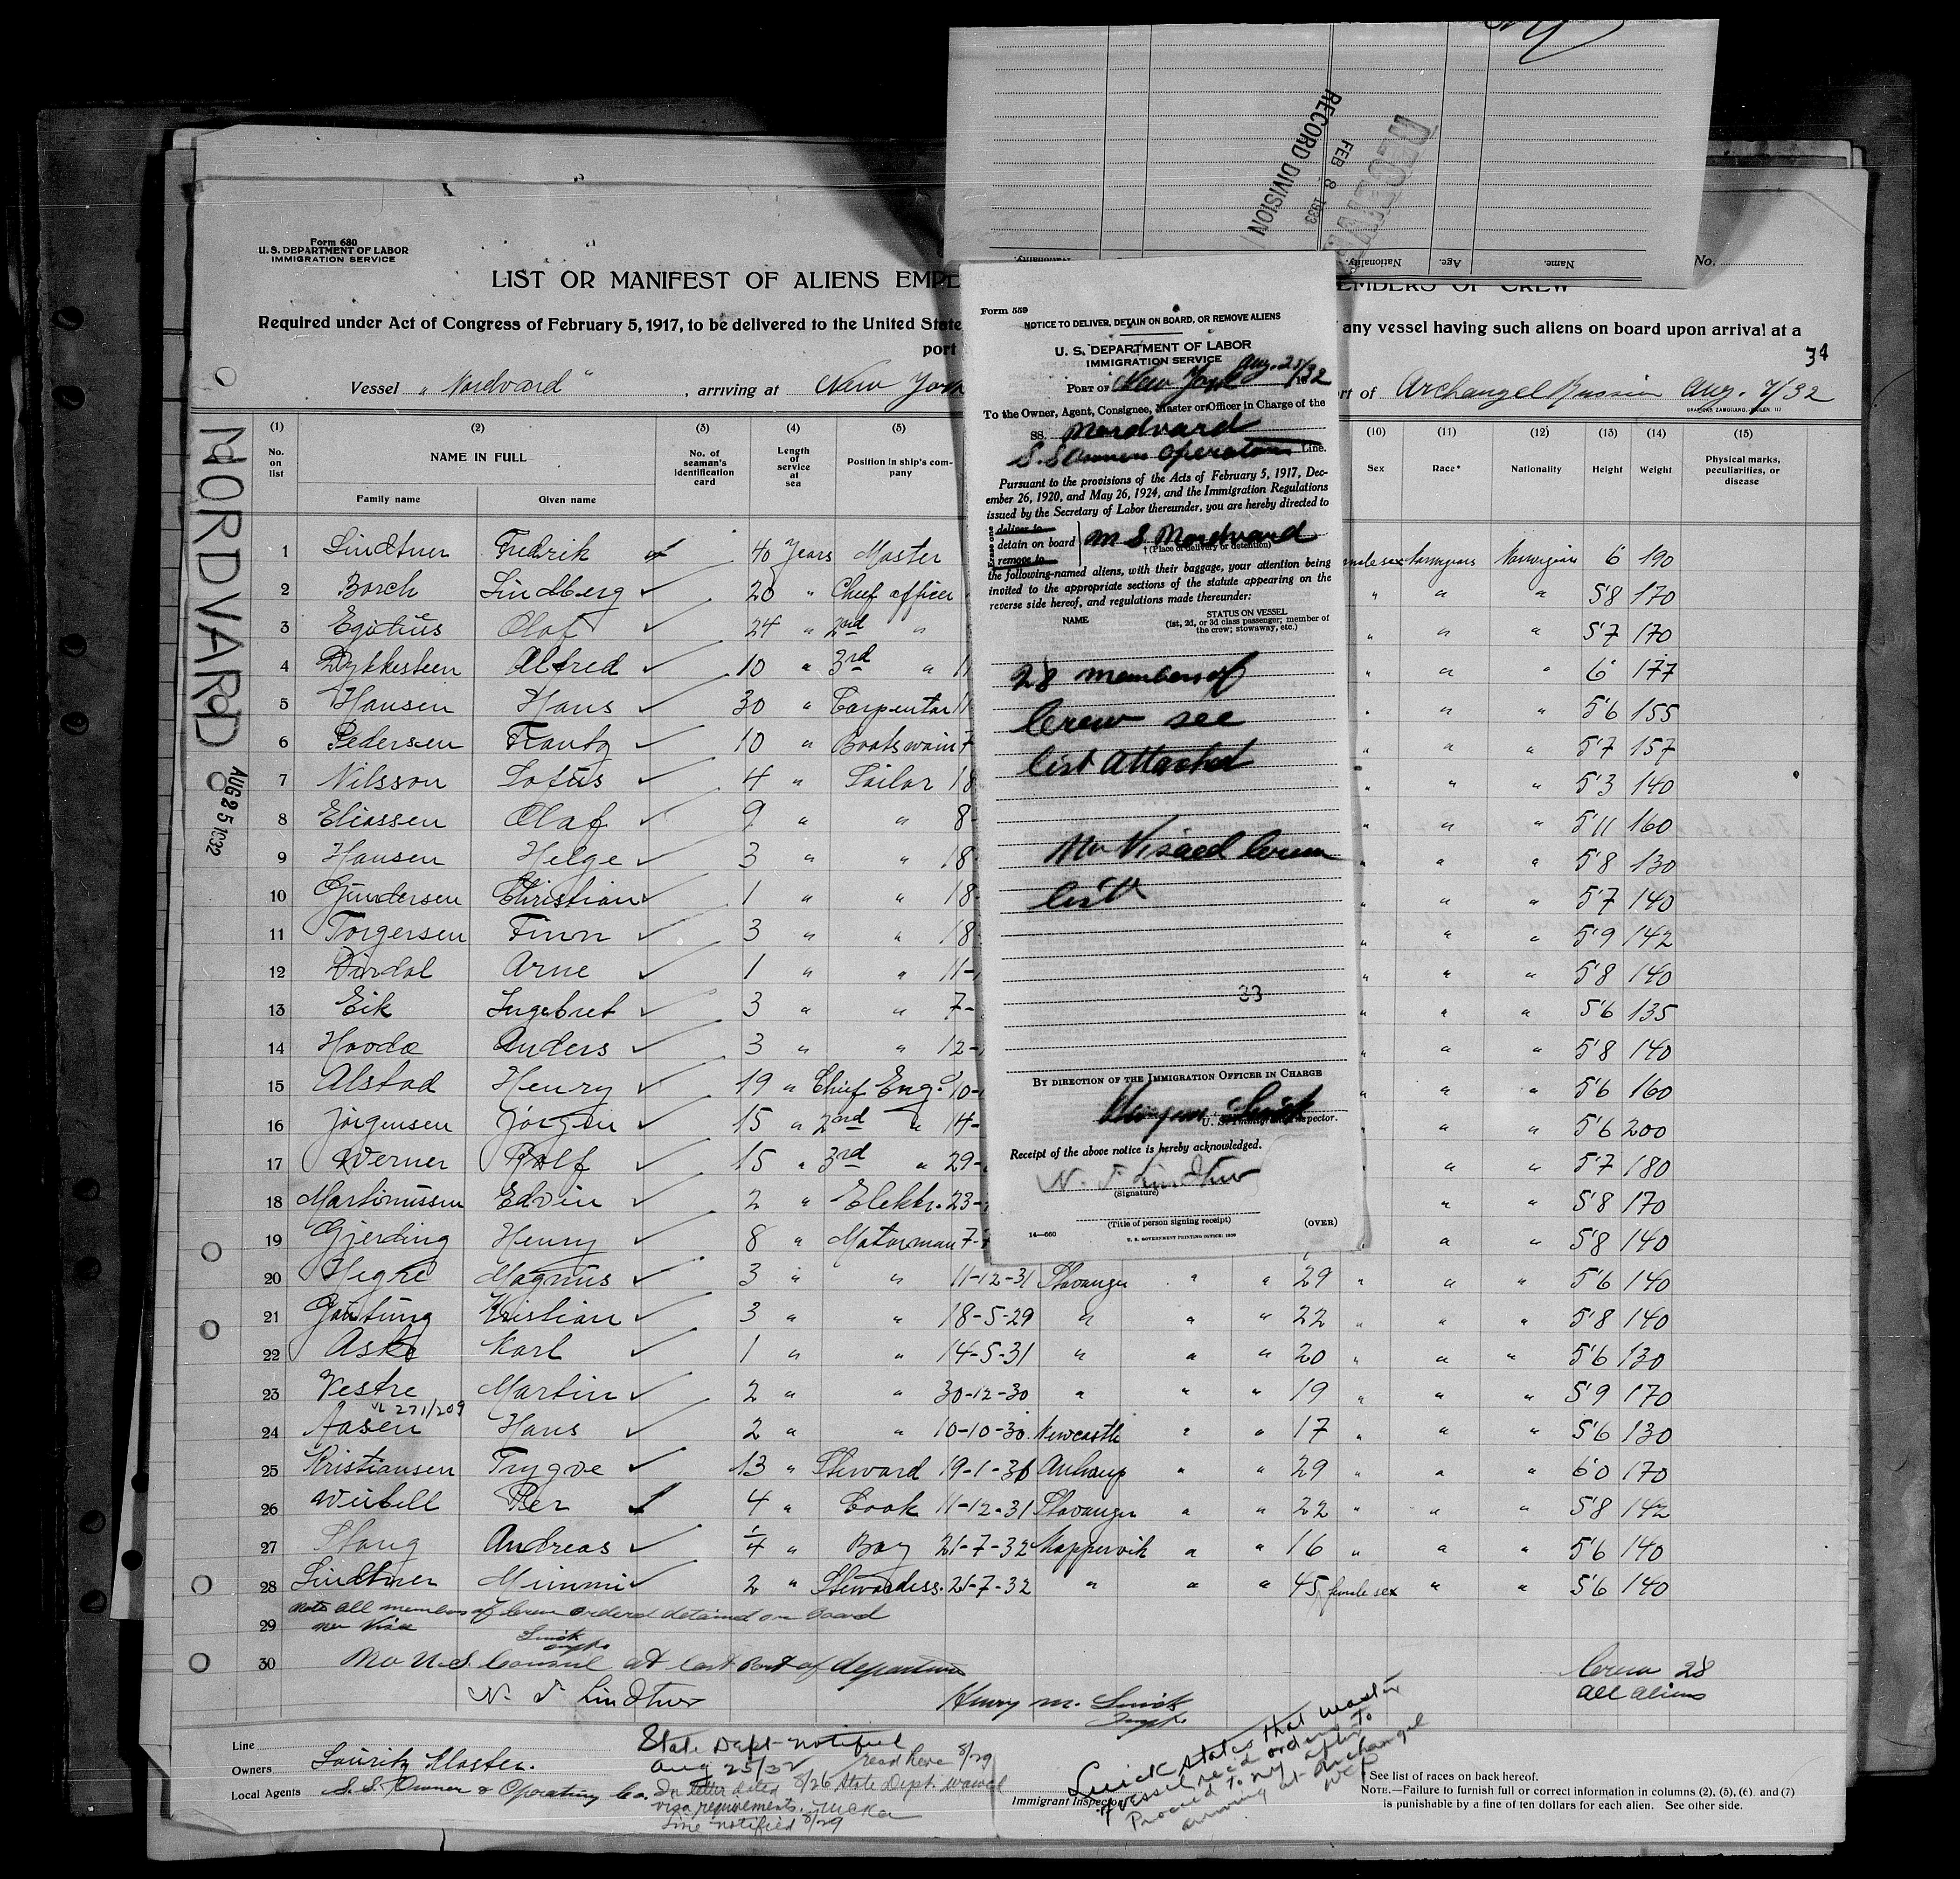 RECEIVED
FEB 8 1933
RECORD DIVISION
Nationality. Age. Name No.
Form 680
U. S. DEPARTMENT OF LABOR
IMMIGRATION SERVICE
LIST OR MANIFEST OF ALIENS EMPL
EMBERS OF CREW
Required under Act of Congress of February 5, 1917, to be delivered to the United State
any vessel having such aliens on board upon arrival at a
port
34
Vessel "Nordvard", arriving at New York
rt of Archangel Russia Aug. 7/32
NORDVARD
AUG 25 1932
(1) (2) (3) (4) (5) (10) (11) (12) (13) (14) (15)
No. on list NAME IN FULL No. of seaman's identification card Length of service at sea Position in ship's company Sex Race* Nationality Height Weight Physical marks, peculiarities, or disease
Family name Given name
1 Lindtner Fredrik 40 Years Master male sex Norwegian Norwegian 6 190
2 Borch Lindberg ✓ 20 " Chief officer " " " 5'8 170
3 Egidius Olaf ✓ 24 " 2nd " " " " 5'7 170
4 Dykkesteen Alfred ✓ 10 " 3rd " 11 " " " 6' 177
5 Hansen Hans ✓ 30 " Carpenter 11 " " " 5'6 155
6 Pedersen Frantz ✓ 10 " Boatswain 7 " " " 5'7 157
7 Nilsson Lotus ✓ 4 " Sailor 18 " " " 5'3 140
8 Eliassen Olaf ✓ 9 " " 8- " " " 5'11 160
9 Hansen Helge ✓ 3 " " 18 " " " 5'8 130
10 Gundersen Christian ✓ 1 " " 18- " " " 5'7 140
11 Torgersen Finn ✓ 3 " " 18- " " " 5'9 142
12 Dirdal Arne ✓ 1 " " 11- " " " 5'8 140
13 Eik Ingebret ✓ 3 " " 7- " " " 5'6 135
14 Hooda Anders ✓ 3 " " 12- " " " 5'8 140
15 Alstad Henry ✓ 19 " Chief Eng. 10- " " " 5'6 160
16 Jörgensen Jörgen ✓ 15 " 2nd " 14- " " " 5'6 200
17 Werner Rolf ✓ 15 " 3rd " 29- " " " 5'7 180
18 Martinussen Edvin ✓ 2 " Elektr. 23- " " 5'8 170
19 Gjerding Henry ✓ 8 " Motorman 7- " " 5'8 140
20 Hegre Magnus ✓ 3 " " 11-12-31 Stavanger " " 29 " " " 5'6 140
21 Gautung Kristian ✓ 3 " " 18-5-29 " " " 22 " " " 5'8 140
22 Aske Karl ✓ 1 " " 14-5-31 " " " 20 " " " 5'6 130
23 Vestre Martin ✓ 2 " " 30-12-30 " " " 19 " " " 5'9 170
271/209
24 Aasen Hans ✓ 2 " " 10-10-30 Newcastle " " 17 " " " 5'6 130
25 Kristiansen Trygve ✓ 13 " Steward 19-1-31 Antwerp " " 29 " " " 6'0 170
26 Weibell Per ✓ 4 " Cook 11-12-31 Stavanger " " 22 " " " 5'8 142
27 Stang Andreas ✓ 1/4 " Boy 21-7-32 Koppervik " " 16 " " " 5'6 140
28 Lindtner Mimmi ✓ 2 " Stewardess 21-7-32 " " " 45 female sex " " 5'6 140
Note All members of Crew ordered detained on board
29 non Visa
Smick
Inspt
30 No U.S. Consul at last Port of departure
N. F. Lindtner
Henry M. Smick
Inspt
Crew 28
all aliens
Line
Owners Lauritz Kloster.
Local Agents S. S. Owner & Operating Co.
State Dept. notified
Aug 25/32 read here 8/29
In letter dated 8/26 State Dept. waived
visa requirements.
Line notified 8/29
Immigrant Inspector.
Smick states that master
of vessel rec'd orders to
Proceed to NY after
arriving at Archangel
*See list of races on back hereof.
NOTE.—Failure to furnish full or correct information in columns (2), (5), (6), and (7)
is punishable by a fine of ten dollars for each alien. See other side.
Form 559
NOTICE TO DELIVER, DETAIN ON BOARD, OR REMOVE ALIENS
U. S. DEPARTMENT OF LABOR
IMMIGRATION SERVICE
PORT OF New York Aug. 25/32
To the Owner, Agent, Consignee, Master or Officer in Charge of the
SS. Nordvard
S.S Owners Operators Line.
Pursuant to the provisions of the Acts of February 5, 1917, Dec-
ember 26, 1920, and May 26, 1924, and the Immigration Regulations
issued by the Secretary of Labor thereunder, you are hereby directed to
Erase one
deliver to
detain on board
remove to
M S Nordvard
† (Place of delivery or detention)
the following-named aliens, with their baggage, your attention being
invited to the appropriate sections of the statute appearing on the
reverse side hereof, and regulations made thereunder:
NAME
STATUS ON VESSEL
(1st, 2d, or 3d class passenger; member of
the crew; stowaway, etc.)
28 members of
Crew see
list attached
Non Visaed Crew
list
33
BY DIRECTION OF THE IMMIGRATION OFFICER IN CHARGE
U. S. Immigrant Inspector.
Receipt of the above notice is hereby acknowledged.
N. F. Lindtner
(Signature)
(Title of person signing receipt)
(OVER)
14—660
U. S. GOVERNMENT PRINTING OFFICE: 1930